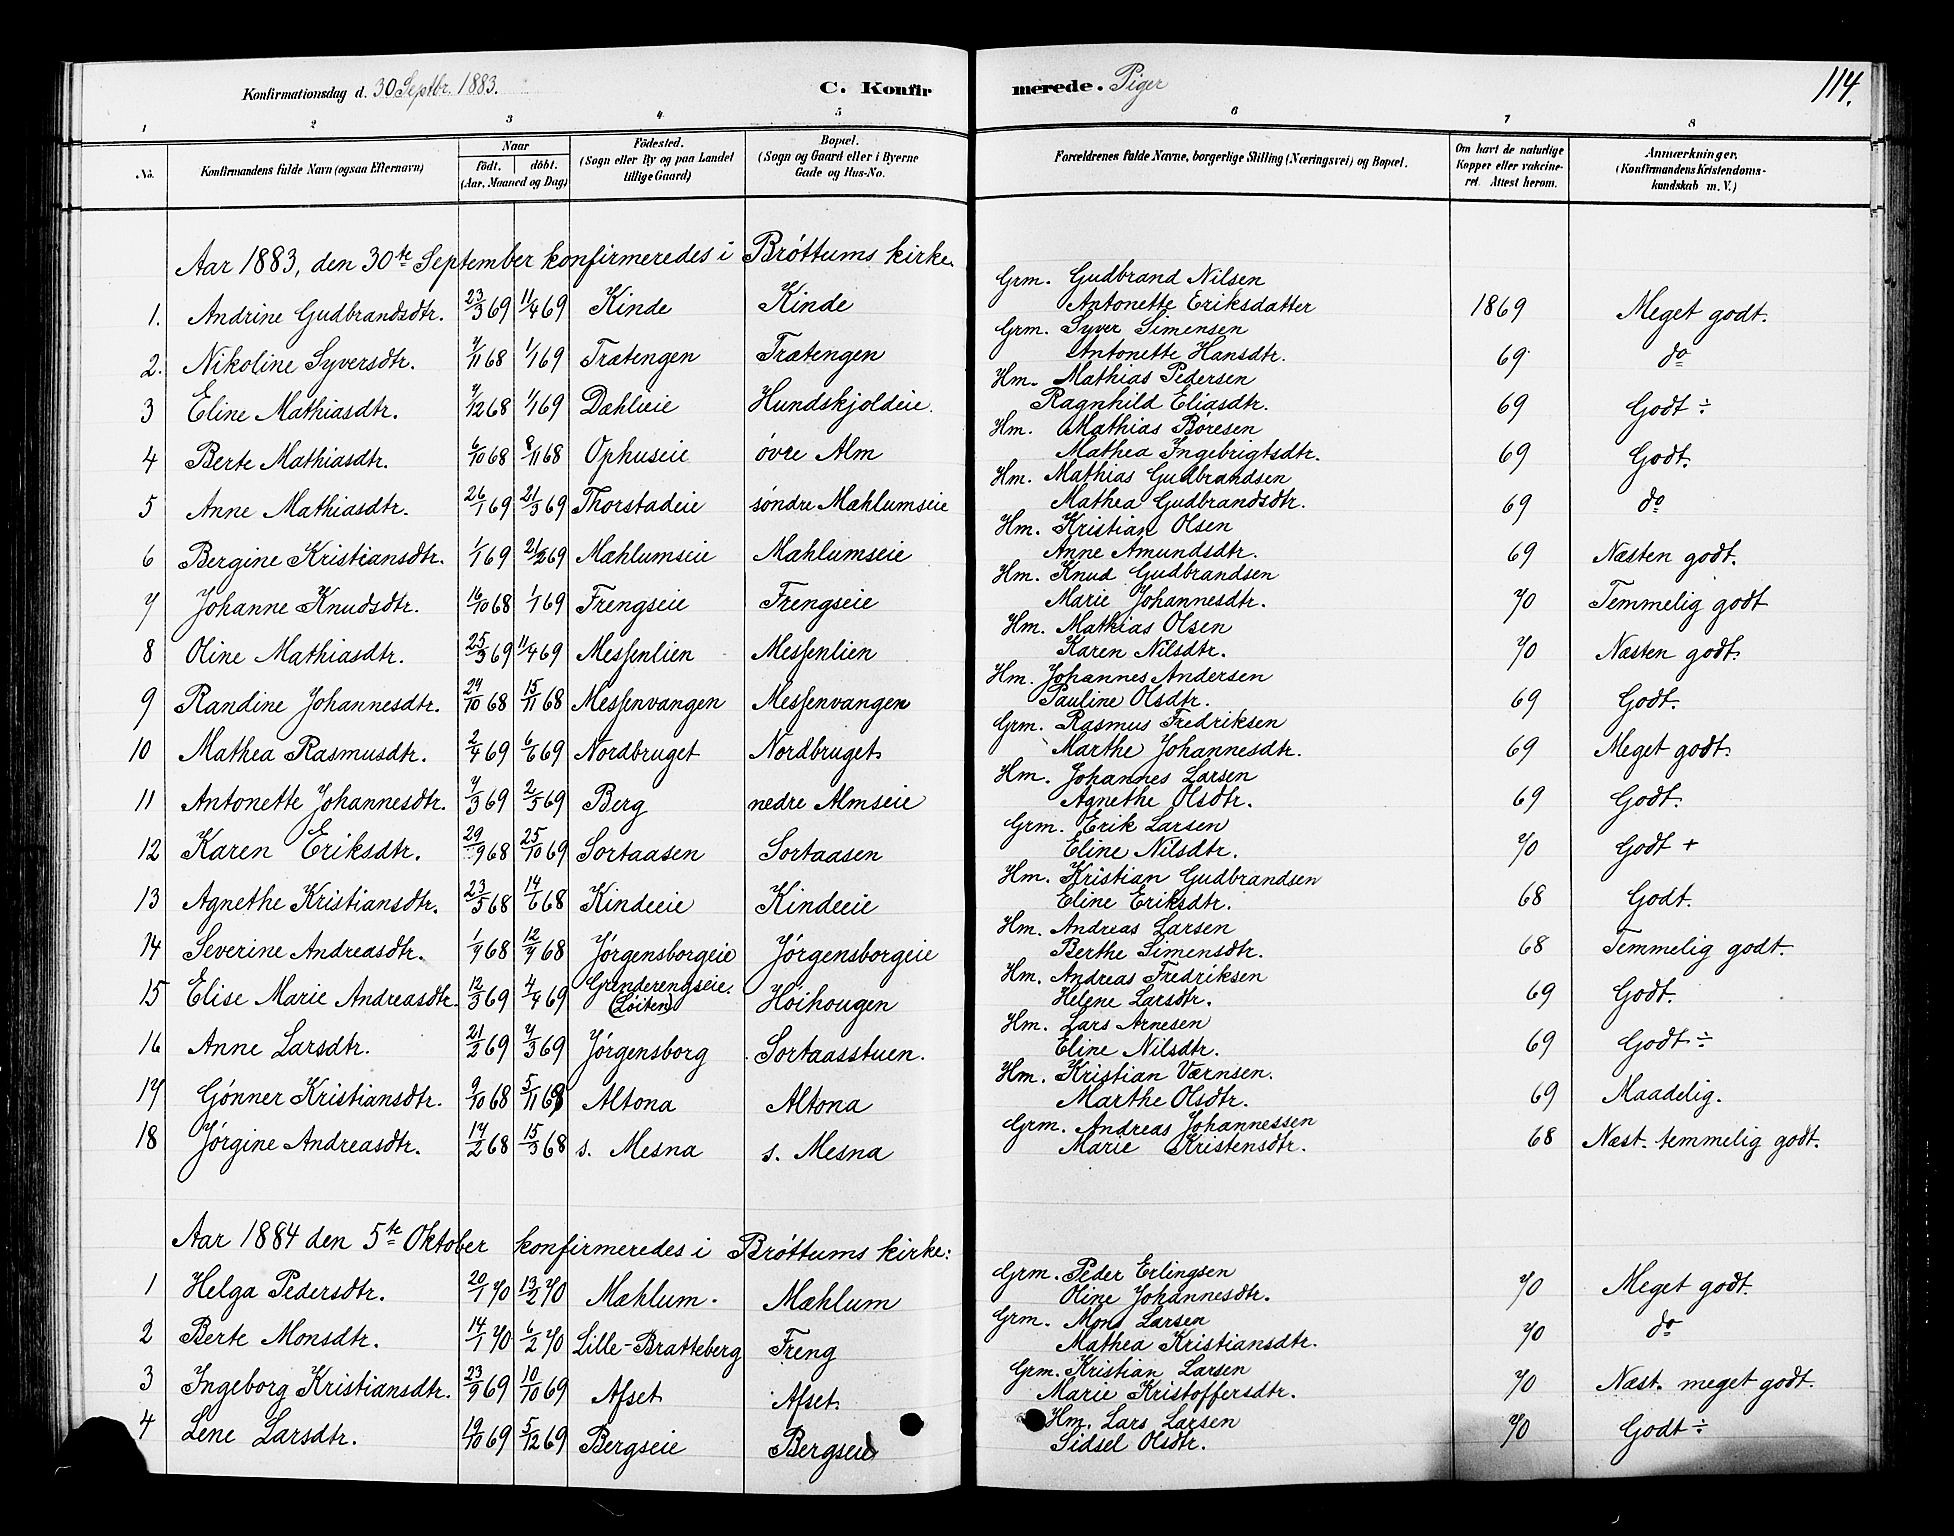 Konfirmationsdag d. 30 Septbr. 1883. C. Konfirmerede. Piger 114.
1 2 3 4 5 6 7 8
No. Konfirmandens fulde Navn (ogsaa Efternavn) Naar födt. döbt. (Aar, Maaned og Dag) Födested. (Sogn eller By og paa Landet tillige Gaard) Bopæl. (Sogn og Gaard eller i Byerne Gade og Hus-No. Forældrenes fulde Navne, borgerlige Stilling (Næringsvei) og Bopæl. Om havt de naturlige Kopper eller vakcineret. Attest herom. Anmærkninger. (Konfirmandens Kristendomskundskab m. V.)
Aar 1883, den 30te September konfirmeredes i Bröttums kirke.
1. Andrine Gudbrandsdtr. 23/3 69 11/4 69 Kinde Kinde Grm. Gudbrand Nilsen Antonette Eriksdatter 1869 Meget godt.
2. Nikoline Syversdtr. 7/11 68 1/1 69 Trætengen Trætengen Grm. Syver Simensen Antonette Hansdtr. 69 do
3 Eline Mathiasdtr. 7/12 68 1/1 69 Dahlieie Hundskjoldeie. Hm. Mathias Pedersen Ragnhild Eliasdtr. 69 Godt ÷
4 Berte Mathiasdtr. 6/10 68 8/11 68 Ophuseie övre Alm Hm. Mathias Böresen Mathea Ingebrigtsdtr. 69 Godt.
5 Anne Mathiasdtr. 26/1 69 21/3 69 Thorstadeie söndre Mæhlumseie Hm. Mathias Gudbrandsen Mathea Gudbrandsdtr. 69 do
6 Bergine Kristiansdtr. 1/1 69 21/2 69 Mæhlumseie Mæhlumseie Hm. Kristian Olsen Anne Amundsdtr. 69 Næsten godt.
7 Johanne Knudsdtr. 16/10 68 1/1 69 Frengseie Frengseie Hm. Knud Gudbrandsen Marie Johannesdtr. 70 Temmelig godt
8 Oline Mathiasdtr. 25/3 69 11/4 69 Messenlien Messenlien Hm. Mathias Olsen Karen Nilsdtr. 70 Næsten godt.
9 Randine Johannesdtr. 24/10 68 15/11 68 Messenvangen Messenvangen Hm. Johannes Andersen Pauline Olsdtr. 69 Godt.
10 Mathea Rasmusdtr. 2/4 69 6/6 69 Nordbruget Nordbruget Grm. Rasmus Fredriksen Marthe Johannesdtr. 69 Meget godt.
11 Antonette Johannesdtr. 7/3 69 2/5 69 Berg nedre Almseie Hm. Johannes Larsen Agnethe Olsdtr. 69 Godt.
12 Karen Eriksdtr. 29/9 68 25/10 69 Sortaasen Sortaasen Grm. Erik Larsen Eline Nilsdtr. 70 Godt +
13 Agnethe Kristiansdtr. 23/5 68 14/6 68 Kindeeie Kindeeie Hm. Kristian Gudbrandsen Eline Eriksdtr. 68 Godt.
14 Severine Andreasdtr. 1/7 68 12/7 68 Jörgensborgeie Jörgensborgeie Hm. Andreas Larsen Berthe Simensdtr. 68 Temmelig godt.
15 Elise Marie Andreasdtr. 12/3 69 4/4 69 Grinderengseie. (Löiten) Höihougen Hm. Andreas Fredriksen Helene Larsdtr. 69 Godt.
16 Anne Larsdtr. 21/2 69 7/3 69 Jörgensborg Sortaasstuen. Hm. Lars Arnesen Eline Nilsdtr. 69 Godt ÷
17 Gönner Kristiansdtr. 9/10 68 5/11 68 Altona Altona Hm. Kristian Værnsen. Marthe Olsdtr. 69 Maadelig.
18 Jörgine Andreasdtr. 17/2 68 15/3 68 s. Mesna s. Mesna Grm. Andreas Johannessen Marie Kristensdtr. 68 Næst. temmelig godt.
Aar 1884 den 5te Oktober konfirmeredes i Bröttums kirke:
1 Helga Pedersdtr. 20/1 70 13/2 70 Mæhlum. Mæhlum Grm. Peder Erlingsen Oline Johannesdtr. 70 Meget godt.
2 Berte Monsdtr. 14/1 70 6/2 70 Lille-Bratteberg Freng Grm. Mons Larsen Mathea Kristiansdtr. 70 do
3 Ingeborg Kristiansdtr. 23/9 69 10/10 69 Afset Afset. Grm. Kristian Larsen Marie Kristoffersdtr. 70 Næst. meget godt.
4 Lene Larsdtr. 19/10 69 5/12 69 Bergseie Bergseie Hm. Lars Larsen Sidsel Olsdtr. 70 Godt ÷